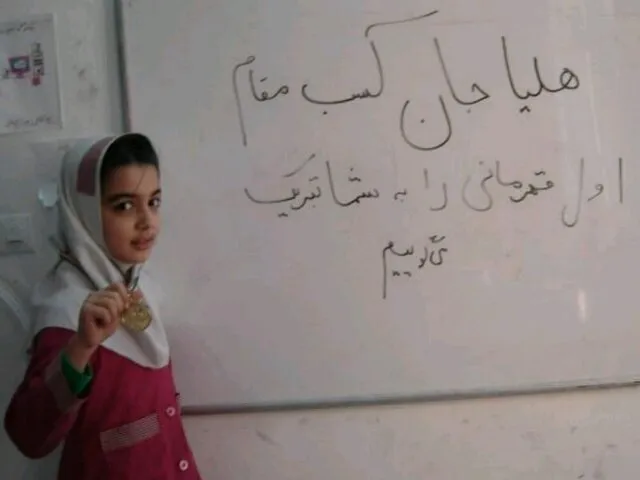 هلیا جان کسب مقام
اول قهرمانی را به شما تبریک
می‌گوییم